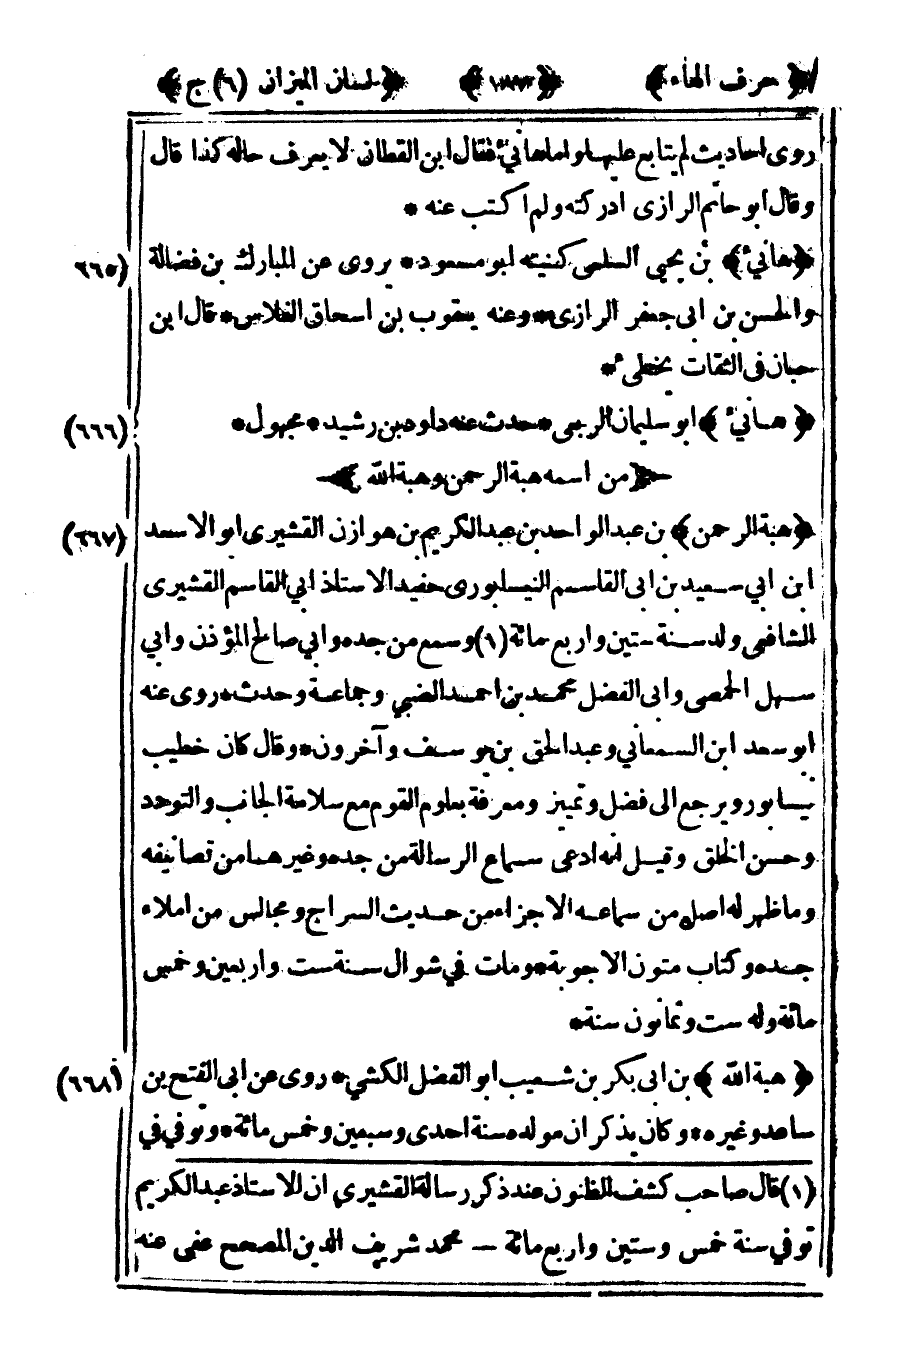 ﴿ حرف الهاء ﴾ ﴿ ١٨٧ ﴾ ﴿ لسان الميزان (٦) ج ﴾
روى احاديث لم يتابع عليها واما هانئ فقال ابن القطان لا يعرف حاله كذا قال
وقال ابو حاتم الرازى ادركته ولم اكتب عنه *
﴿ هانئ ﴾ بن يحيى السلمى كنيته ابو مسعود * يروى عن المبارك بن فضالة (٦٦٥)
والحسن بن ابى جعفر الرازى * وعنه يعقوب بن اسحاق الفلاس * قال ابن
حبان فى الثقات يخطئ *
﴿ هانئ ﴾ ابو سليمان الربعى * حدث عنه داود بن رشيد * مجهول * (٦٦٦)
﴿ من اسمه هبة الرحمن وهبة الله ﴾
﴿ هبة الرحمن ﴾ بن عبد الواحد بن عبد الكريم بن هوازن القشيرى ابو الاسعد (٦٦٧)
ابن ابي سعيد بن ابى القاسم النيسابورى حفيد الاستاذ ابي القاسم القشيرى
الشافعى ولد سنة ستين واربع مائة (١) وسمع من جده وابي صالح المؤذن وابي
سهل الحمصى وابى الفضل محمد بن احمد الضبي وجماعة وحدث * روى عنه
ابو سعد ابن السمعاني وعبد الحق بن يوسف وآخرون * وقال كان خطيب
نيسابور ويرجع الى فضل وتمييز ومعرفة بعلوم القوم مع سلامة الجانب والتوحد
وحسن الخلق وقيل انه ادعى سماع الرسالة من جده وغيرهما من تصانيفه
وما ظهر له اصل من سماعه الا جزاء من حديث السراج ومجالس من املاء
جده وكتاب متون الاجوبة * ومات في شوال سنة ست واربعين وخمس
مائة وله ست وثمانون سنة *
﴿ هبة الله ﴾ بن ابى بكر بن شعيب ابو الفضل الكشي * روى عن ابى الفتح بن (٦٦٨)
ساعد وغيره * وكان يذكر ان مولده سنة احدى وسبعين وخمس مائة * وتوفي في
(١) قال صاحب كشف الظنون عند ذكر رسالة القشيرى ان الاستاذ عبد الكريم
توفي سنة خمس وستين واربع مائة — محمد شريف الدين المصحح عفى عنه